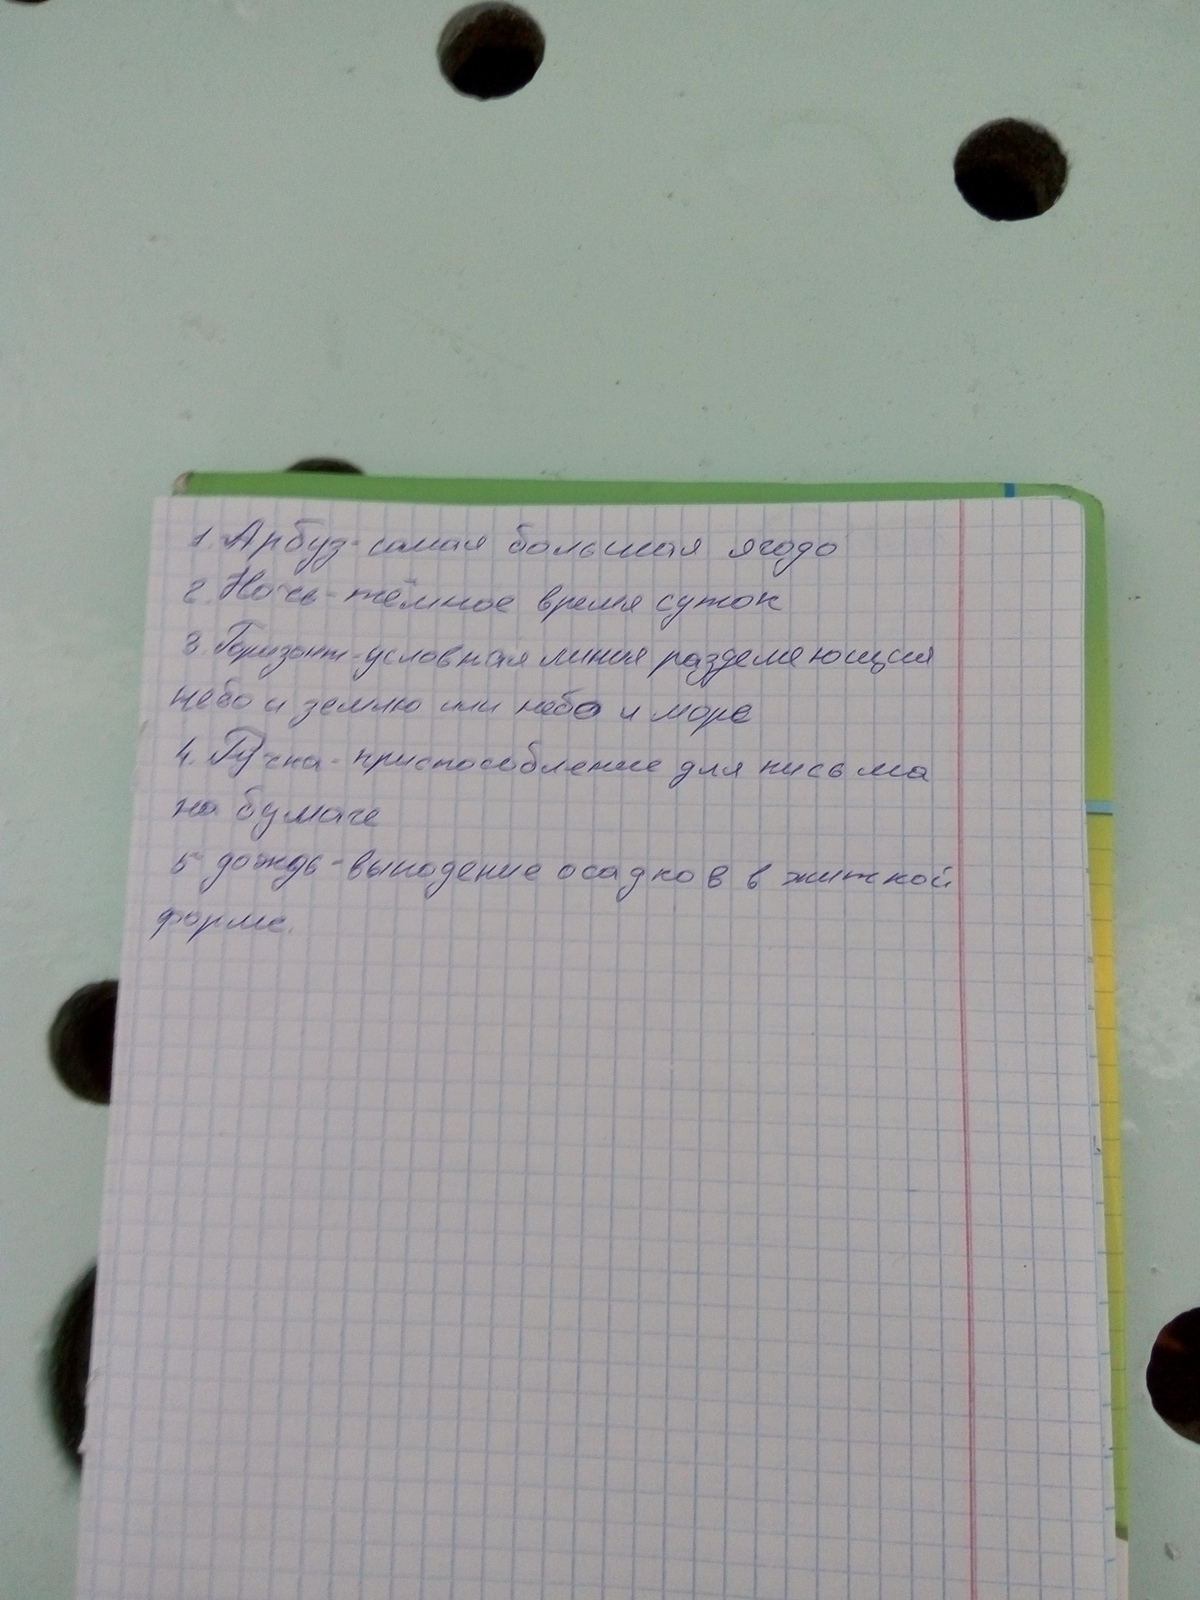 1. Арбуз-самая большая ягодо
2. Ночь-тёмное время суток
3. Горизонт-условная линия разделяющия
небо и землю или небо и море
4. Ручка-приспособление для письма
на бумаге
5 дождь-выподение осадков в житкой
форме.